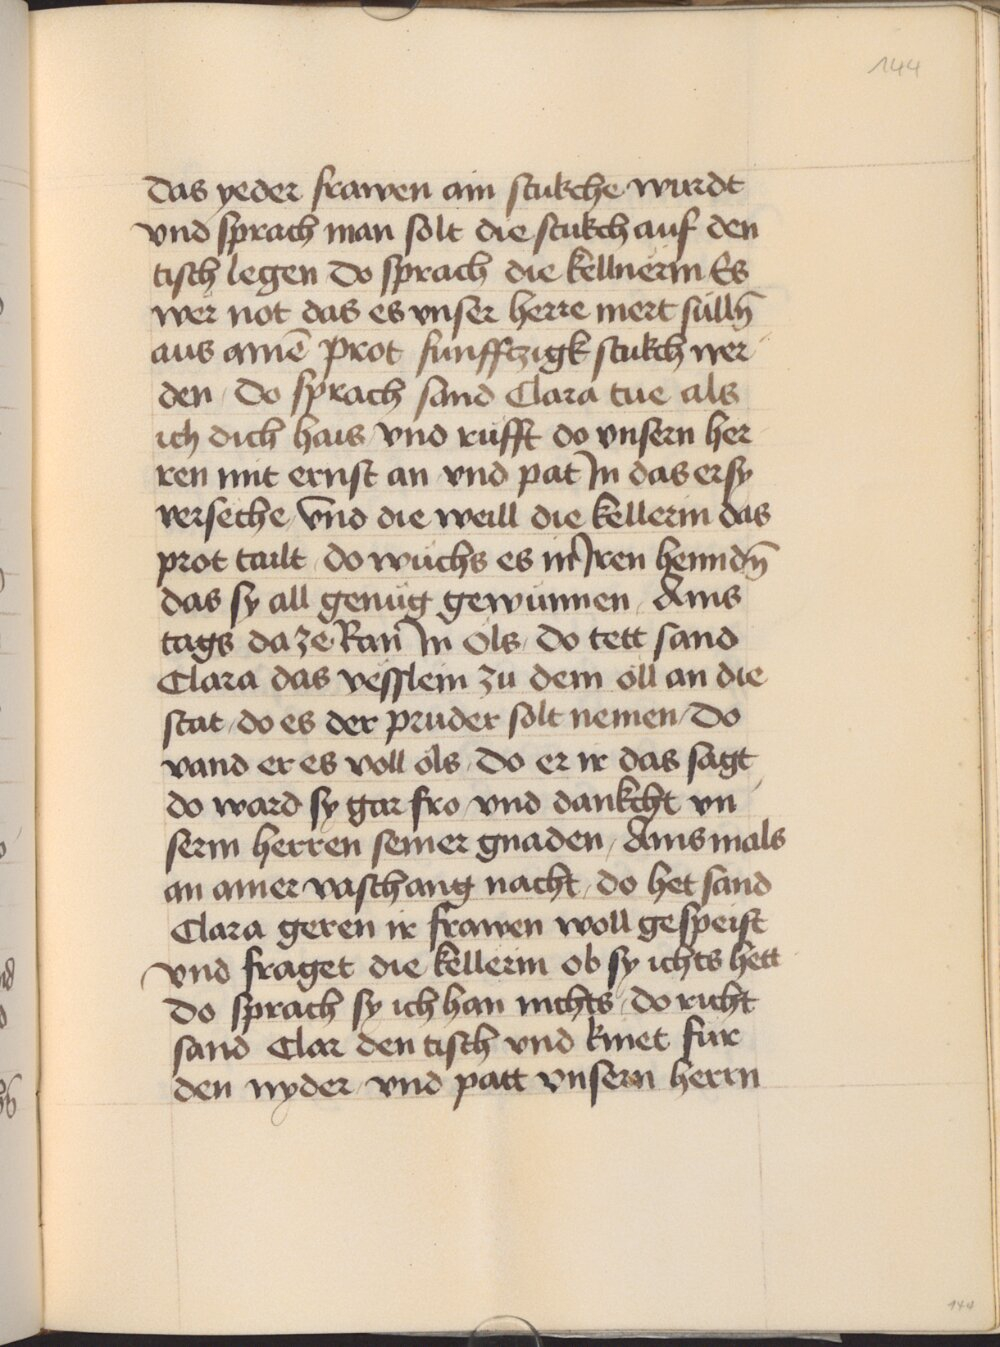 144
das yeder frawen ain stukche wurdt
vnd sprach man solt die stukch auf den
tisch legen Do sprach die kellnerin Es
wer not das es vnser herre mert sulln̄
aus ainē prot funfftzigk stukch wer
den / Do sprach sand Clara tue als
ich dich hais / vnd rüfft do vnsern her
ren mit ernst an vnd pat In das er sy
verseche / Vnd die weill die kellerin das
prot tailt / do wuchs es in Iren henndn̄
das sy all genüg gewünnen / Ains
tags da ze Ran In öls / do tett sand
Clara das vesslein zu dem öll an die
stat / do es der pruder solt nemen / Do
vand er es voll öls / Do er ir das sagt
do ward sy gar fro / vnd dankcht vn
serm herren seiner gnaden / Ains mals
an ainer vaschang nacht / do het sand
Clara geren ir frawen woll gespeist
vnd fraget die kellerin ob sy ichts hett
Do sprach sy ich han nichts / do richt
sand Clar den tisch vnd kniet für
den nyder / vnd patt vnsern herrn
144